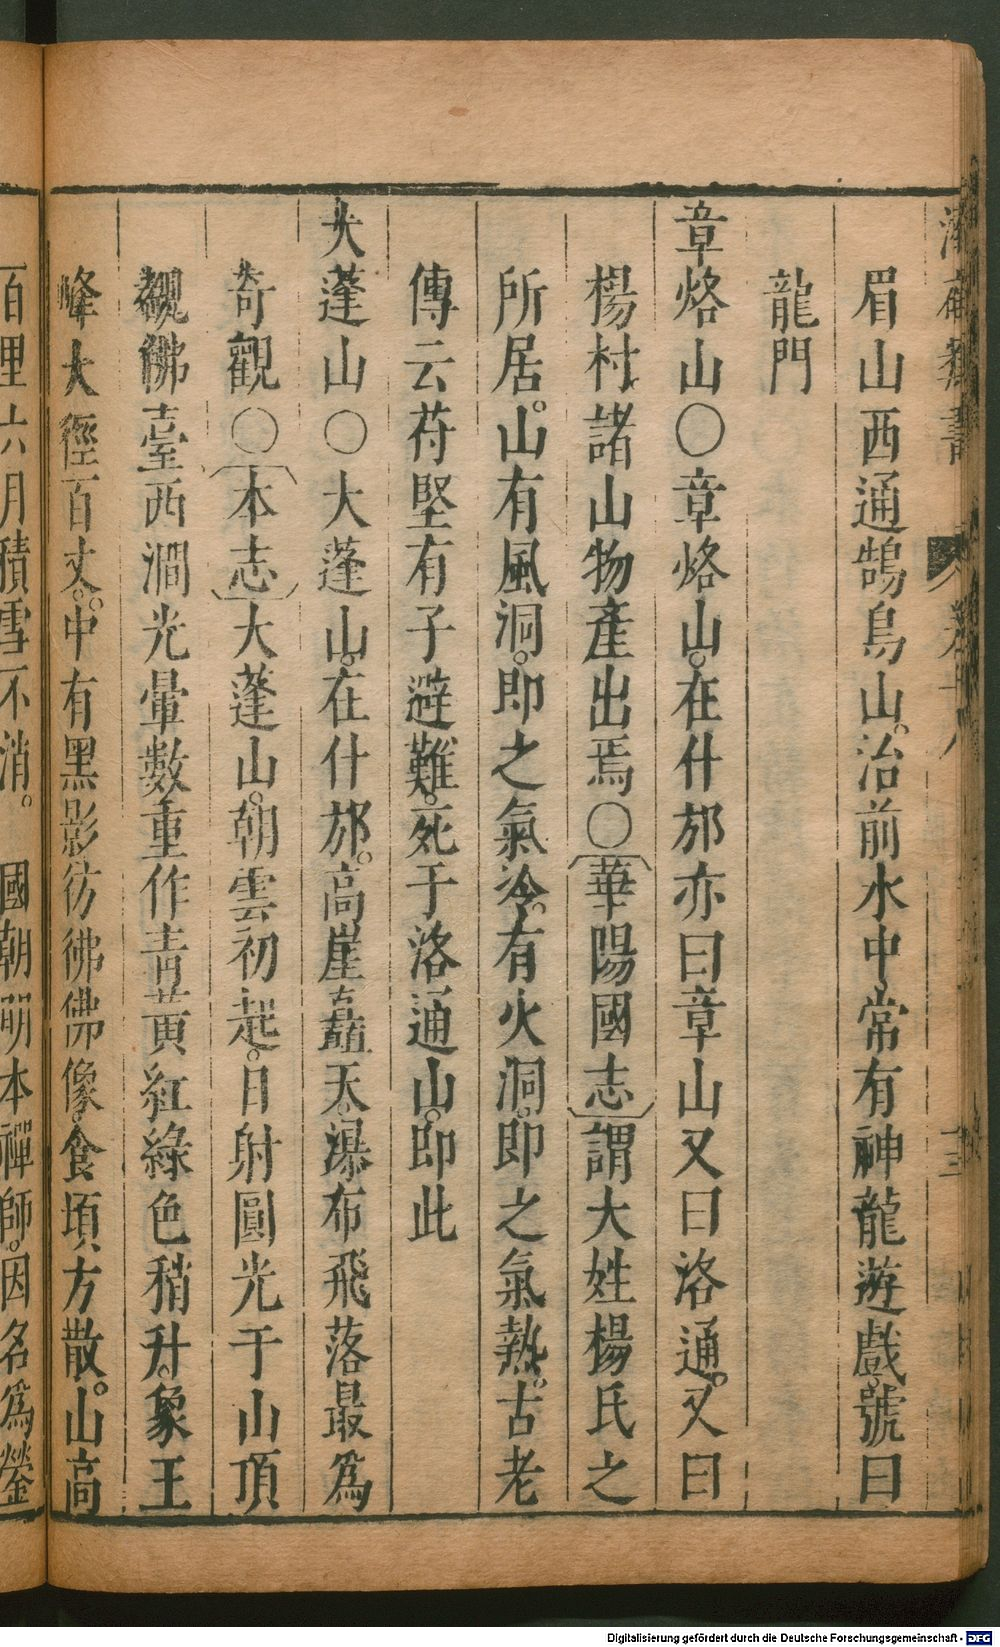 卷十八
十三
眉山西通鵠鳥山。治前水中常有神龍遊戲。號曰
龍門
章烙山〇章烙山。在什邡亦曰章山又曰洛通。又曰
楊村諸山物產出焉〇(華陽國志)謂大姓楊氏之
所居。山有風洞。即之氣冷。有火洞。即之氣熱。古老
傳云苻堅有子避難。死于洛通山。即此
大蓬山〇大蓬山。在什邡。高崖矗天。瀑布飛落最為
奇觀〇(本志)大蓬山。朝雲初起。日射圓光于山頂
觀佛臺西澗光暈數重作青黃紅綠色稍升。象王
峰大徑百丈。中有黑影彷彿佛像。食頃方散。山高
百里六月積雪不消。 國朝朗本禪師。因名為瑩
Digitalisierung gefördert durch die Deutsche Forschungsgemeinschaft - DFG